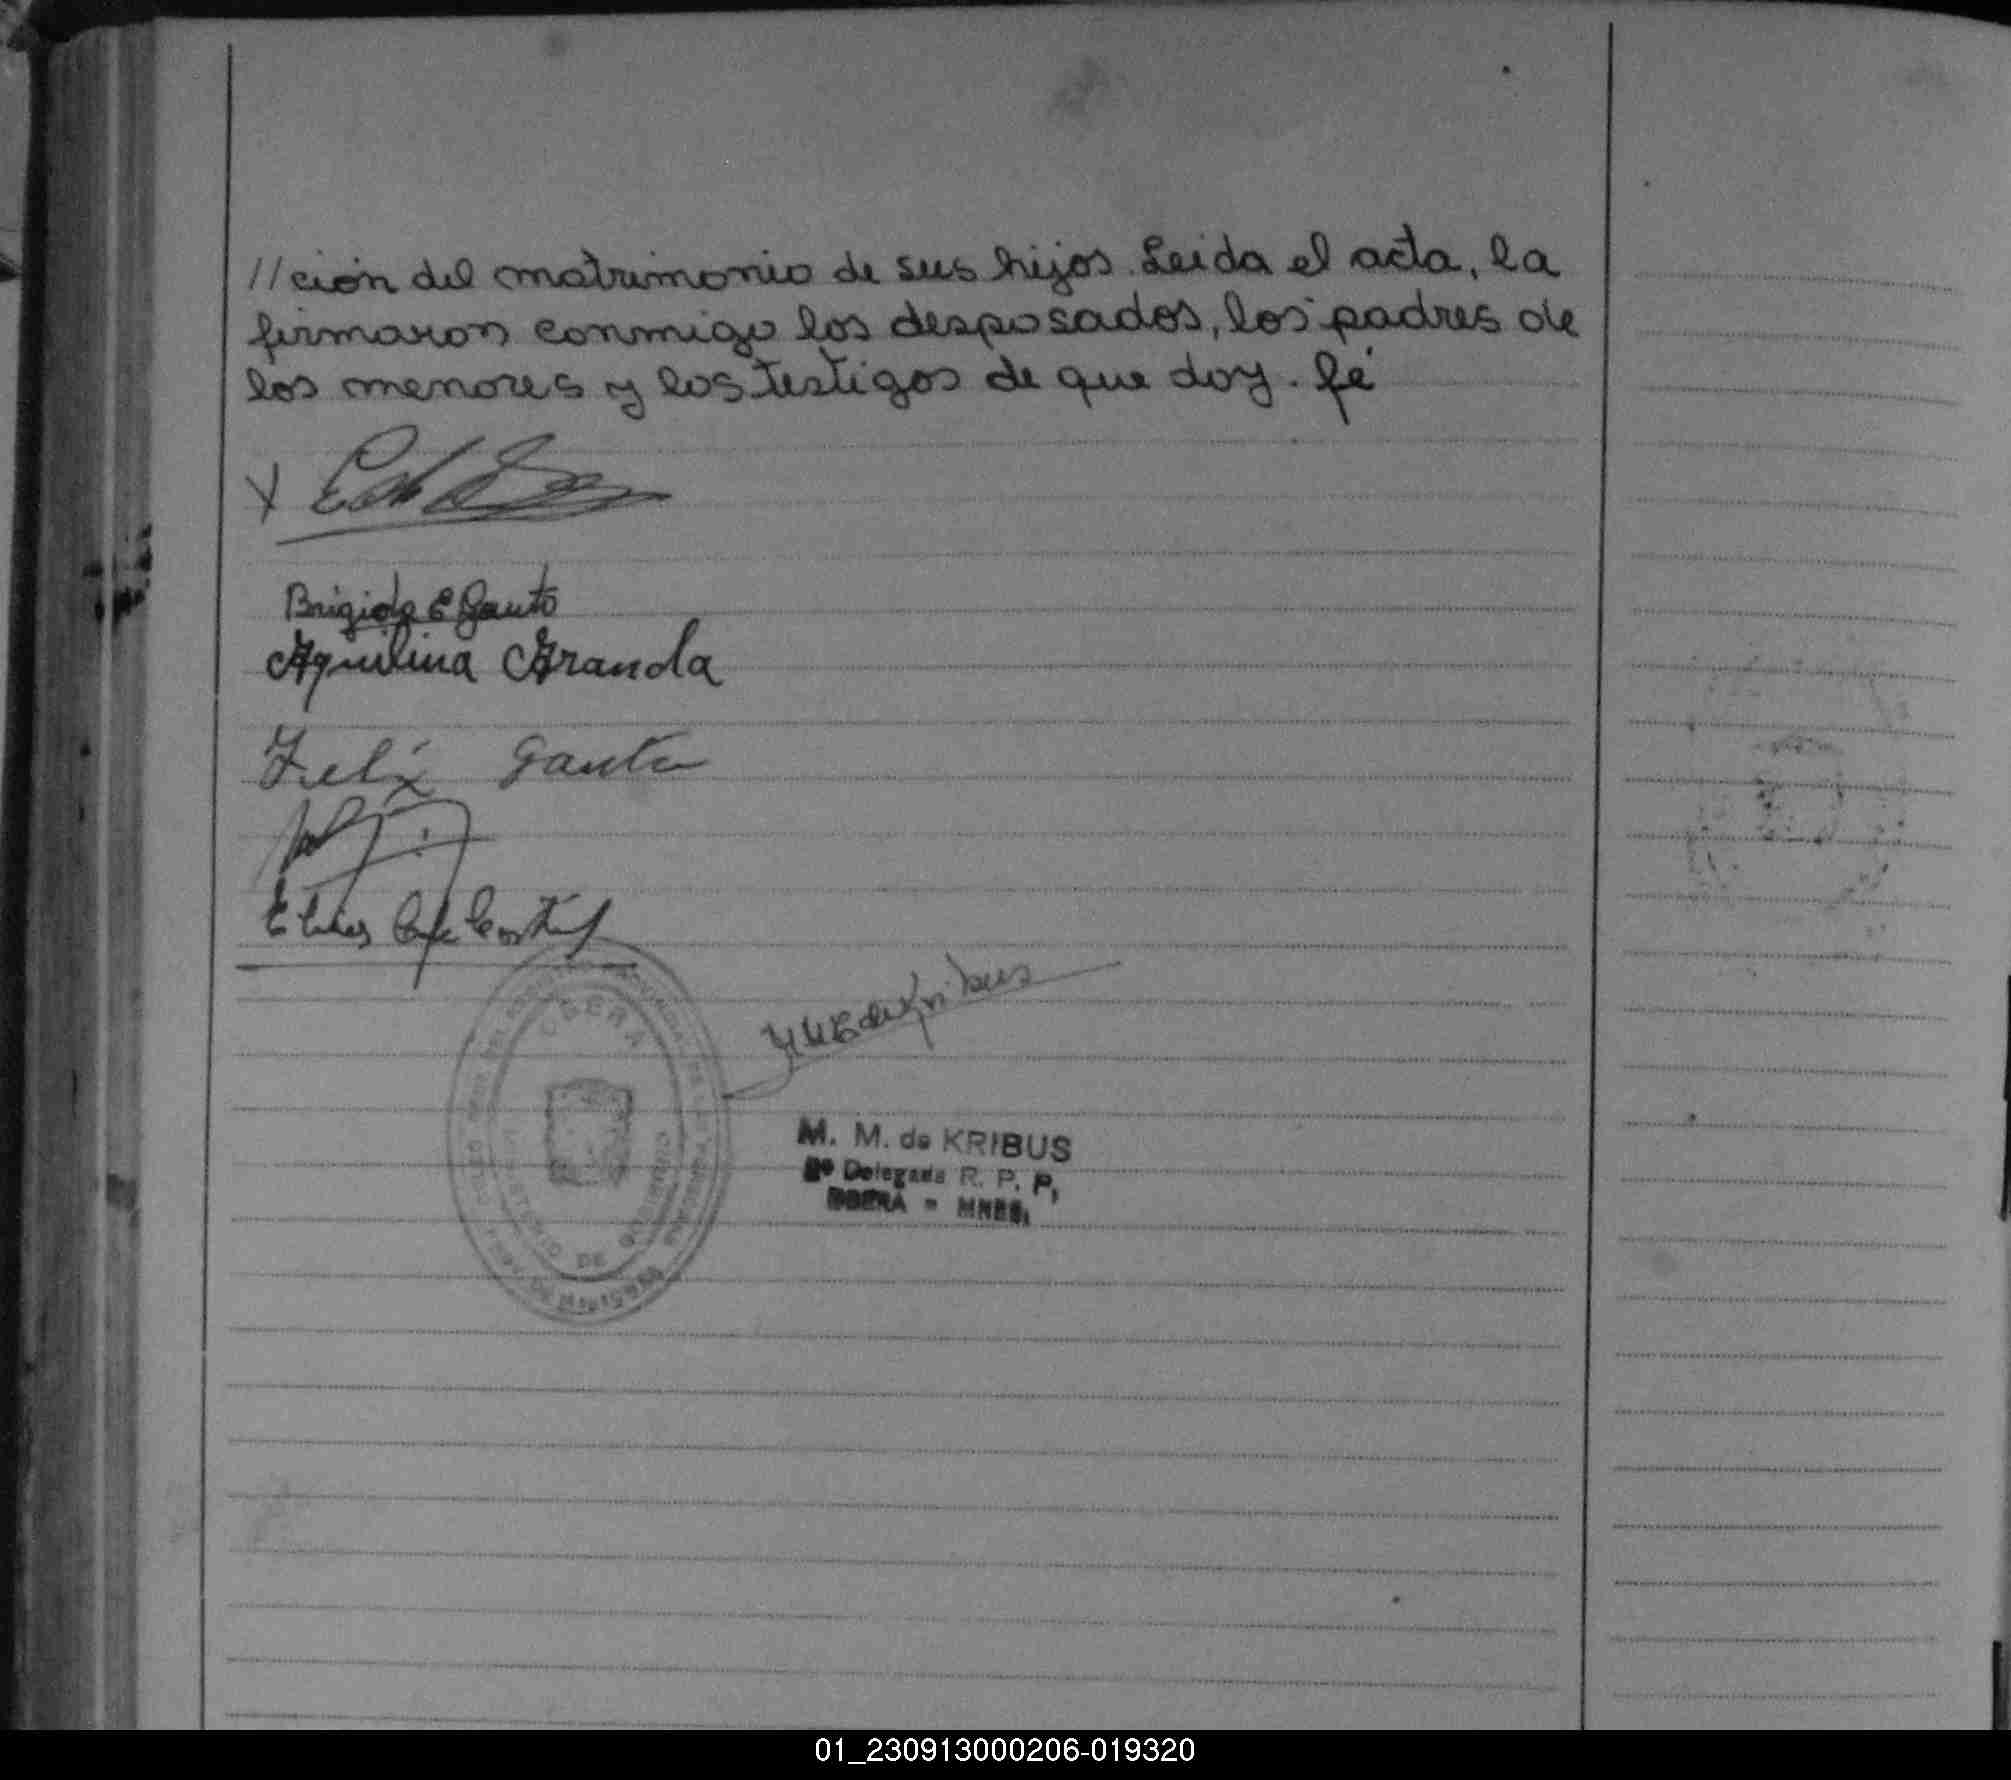 //ción del matrimonio de sus hijos. Leida el acta, la
firmaron conmigo los desposados, los padres de
los menores y los testigos de que doy. fé
Brigida E Gauto
Aquilina Aranda
Felix Gauto
OBERA
MINISTERIO DE GOBIERNO
M. M. de KRIBUS
Delegada R. P. P,
OBERA - MNES,
01_230913000206-019320